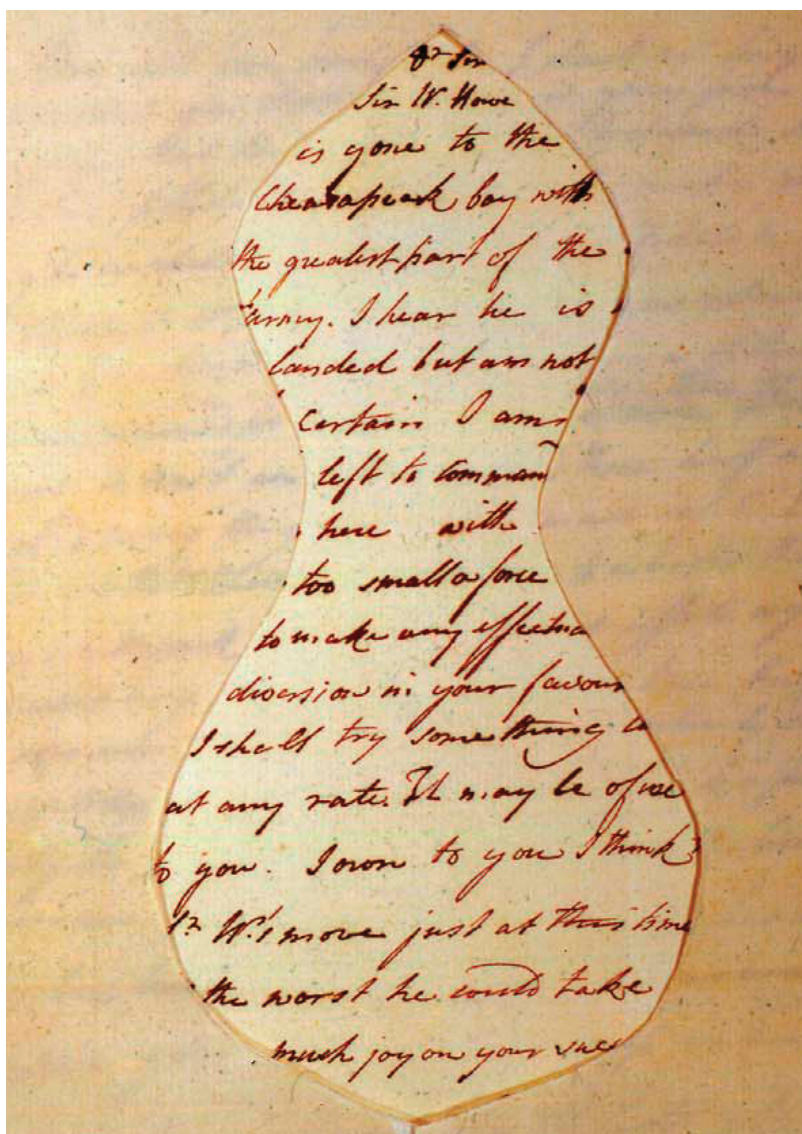 Dr Sir
Sir W. Howe
is gone to the
Chesapeak bay with
the greatest part of the
army. I hear he is
landed but am not
certain I am
left to comman
here with
too small a force
to make any effectua
diversion in your favour
I shall try something
at any rate. It may be of use
to you. I own to you I think
Sr W's move just at this time
the worst he could take
much joy on your succ